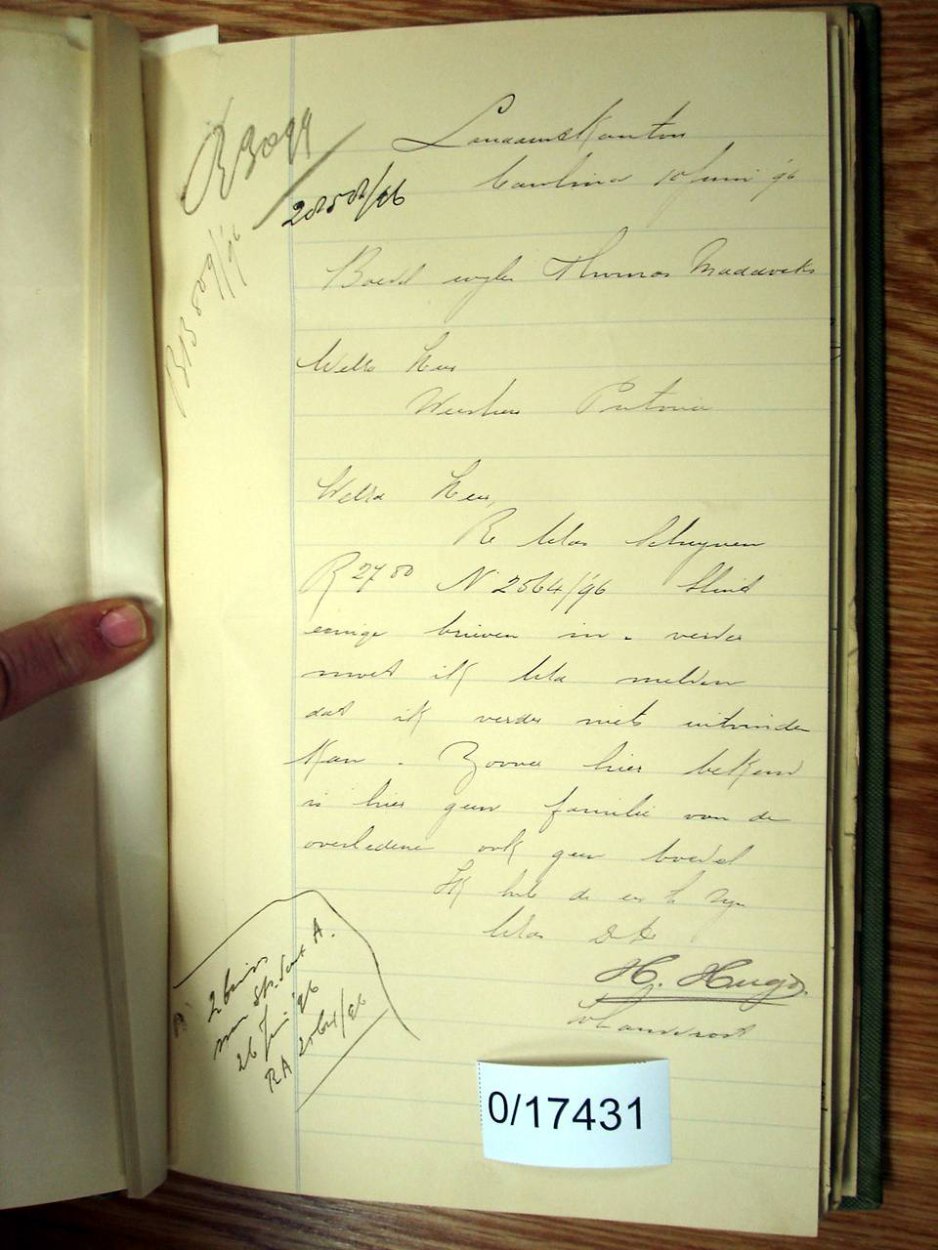 R 3099
2050B/96
BB 509/96
Landdrostkantoor
Carolina 10 Juni 96
Boedel wijlen Thomas
WelEd Heer
Weesheer Pretoria
WelEd Heer,
Re UEds Schrijven
R 2700 N 2564/96 Sluit
eenige brieven in. verder
moet ik UEd melden
dat ik verder niets uitvinden
kan. Zoover hier bekend
is hier geen familie van de
overledene ook geen boedel
Ik heb de eer te zijn
UEds D D
H. Hugo
Landdrost
2 brieven
26 Juni 96
RA 2564/96
0/17431